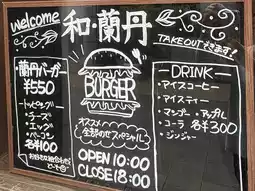 welcome
和・蘭丹
TAKE OUTできます!
・蘭丹バーガー
¥550
・トッピング
・チーズ
・エッグ
・ベーコン
各¥100
BURGER
オススメ
全部のせスペシャル
OPEN 10:00
CLOSE 18:00
DRINK
・アイスコーヒー
・アイスティー
・マンゴー・アップル
・コーラ 各¥300
・ジンジャー